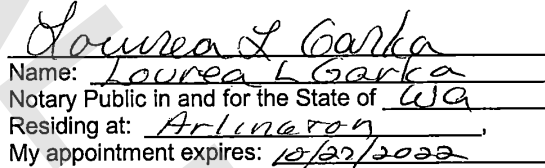 Lourea L Garka
Name: Lourea L Garka
Notary Public in and for the State of WA
Residing at: Arlington,
My appointment expires: 10/27/2022